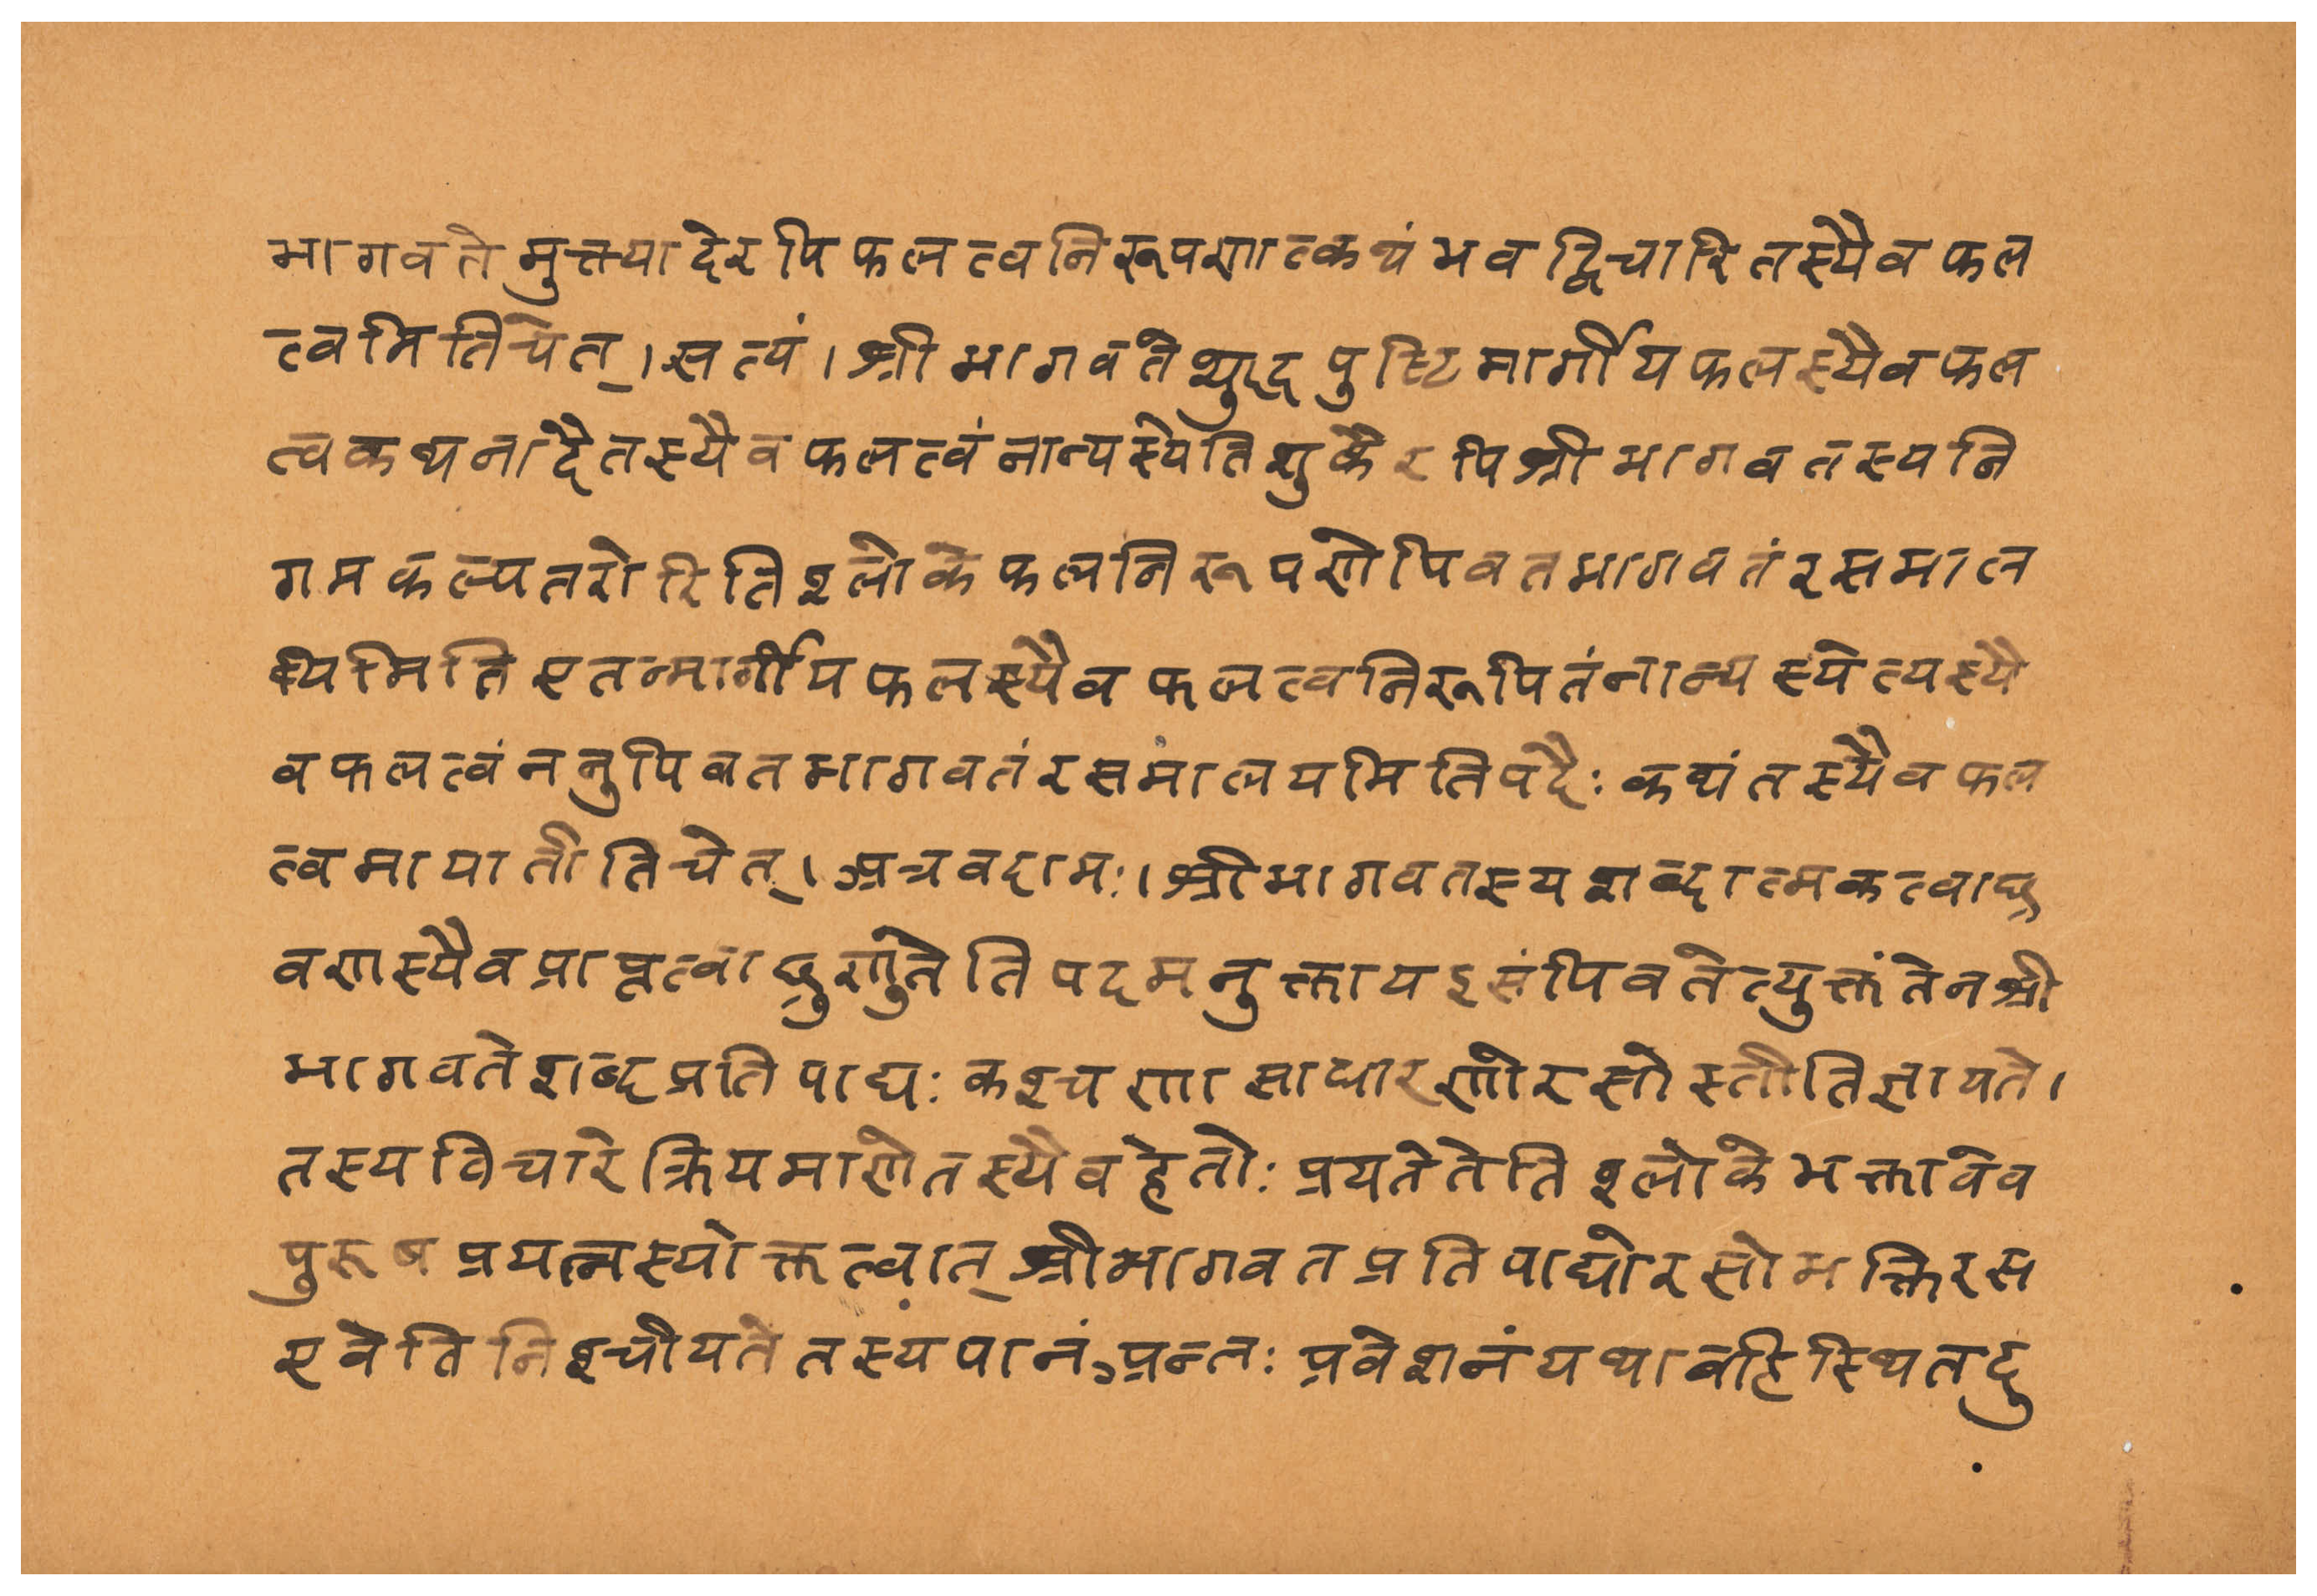 भागवतेमुक्त्यादेरपिफलत्वनिरूपणात्कथंभवद्विचारितस्यैवफल
त्वमितिचेत्।सत्यं।श्रीभागवतेशुद्धपुष्टिमार्गीयफलस्यैवफल
त्वकथनादेतस्यैवफलत्वंनान्यस्येतिशुकैरपिश्रीभागवतस्यनि
गमकल्पतरोरितिश्लोकेफलनिरूपणेपिवतभागवतंरसमाल
यमितिएतन्मार्गीयफलस्यैवफलत्वनिरूपितंनान्यस्येत्यस्यै
वफलत्वंननुपिवतभागवतंरसमालयमितिपदैःकथंतस्यैवफल
त्वमायातीतिचेत्।अत्रवदामः।श्रीभागवतस्यशब्दात्मकत्वाछ्र
वणस्यैवप्राप्तत्वाछृणुतेतिपदमनुक्तायद्रसंपिवतेत्युक्तंतेनश्री
भागवतेशब्दप्रतिपाद्यःकश्चणासाधारणोरसोस्तीतिज्ञायते।
तस्यविचारेक्रियमाणेतस्यैवहेतोःप्रयतेतेतिश्लोकेभक्तावेव
पुरुषप्रयत्नस्योक्तत्वात्श्रीभागवतप्रतिपाद्योरसोभक्तिरस
एवेतिनिश्चीयतेतस्यपानंअन्तःप्रवेशनंयथावहिस्थितदु